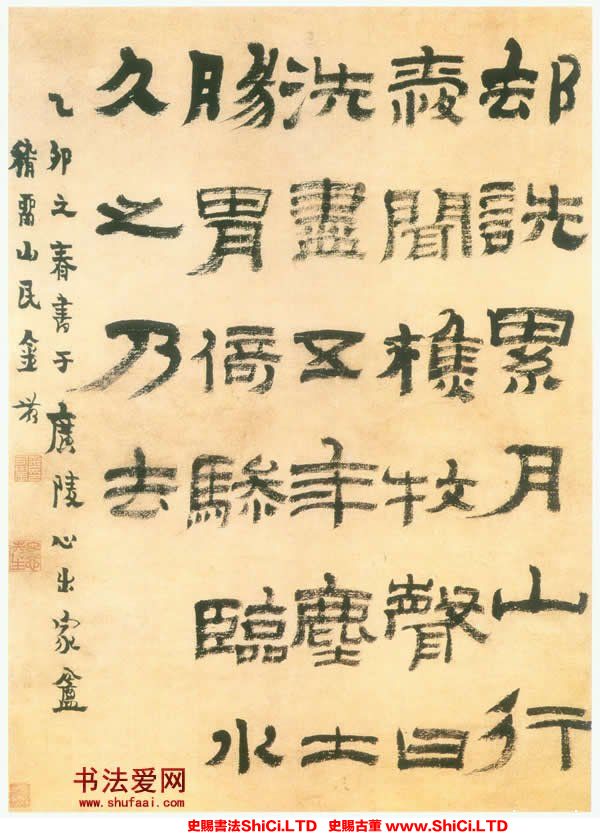 却詵累月山行
夜聞樵牧聲曰
洗盡五年塵土
腸胃倚驂臨水
久之乃去
乙卯之春書于廣陵心出家盦
稽留山民金農
书法爱网
www.shufaai.com
史賜書法ShiCi.LTD 史賜古董 www.ShiCi.LTD